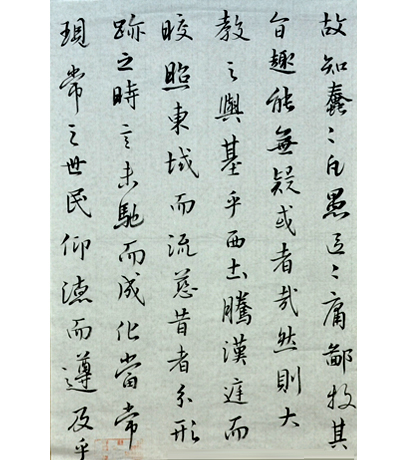 故知蠢〻凡愚區〻庸鄙投其
旨趣能無疑或者哉然則大
教之興基乎西土騰漢庭而
皎照東域而流慈昔者分形
跡之時言未馳而成化當常
現常之世民仰德而遵及乎